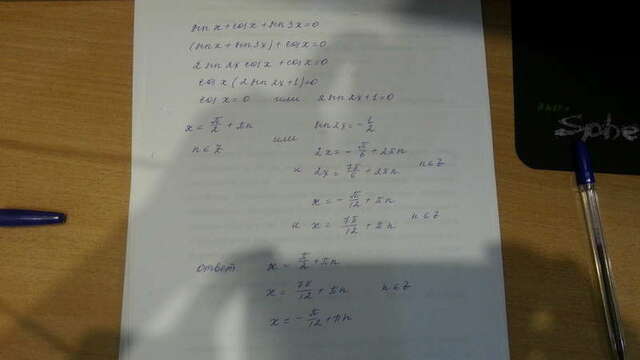 sin x + cos x + sin 3x = 0
(sin x + sin 3x) + cos x = 0
2 sin 2x cos x + cos x = 0
cos x (2 sin 2x + 1) = 0
cos x = 0 или 2 sin 2x + 1 = 0
x = π/2 + πn или sin 2x = -1/2
n ∈ Z
2x = -π/6 + 2πn
и 2x = 7π/6 + 2πn n ∈ Z
x = -π/12 + πn
и x = 7π/12 + πn n ∈ Z
ответ x = π/2 + πn
x = 7π/12 + πn n ∈ Z
x = -π/12 + πn